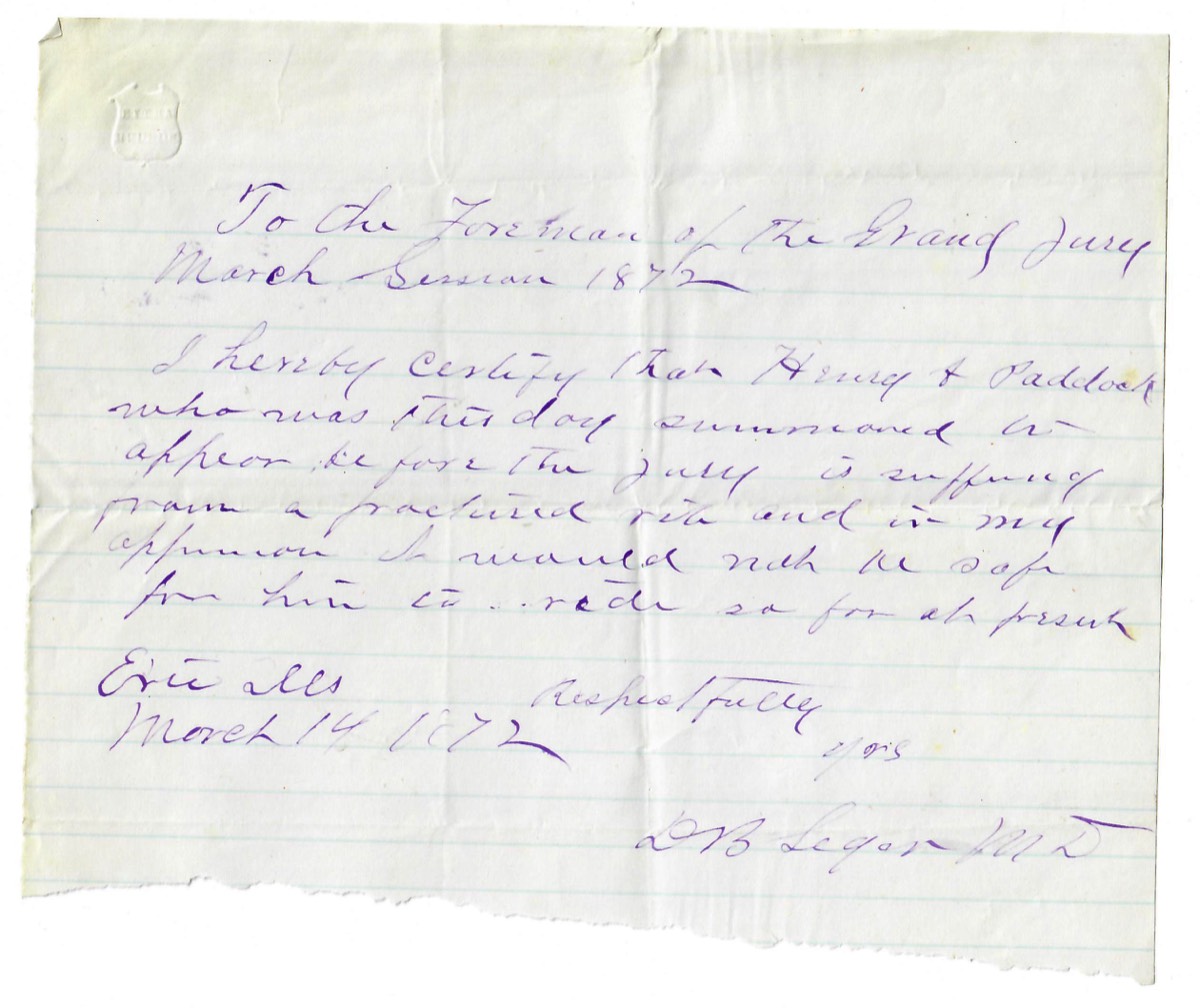 To the Foreman of the Grand Jury
March Session 1872
I hereby certify that Henry & Paddock
who was this day summoned to
appear before the jury is suffring
from a fractured rib and in my
oppinion it would not be safe
for him to .. ride so far at present
Erie Ills
March 14 1872
Respectfully
yors
D B Seger M D